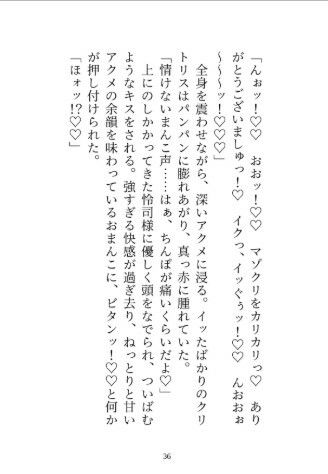 「んぉッ！♡♡　おおッ！♡♡　マゾクリをカリカリっ♡　あり
がとうございましゅっ！♡　イクっ、イッぐぅッ！♡♡　んおおぉ
～～～ッ！♡♡♡」
全身を震わせながら、深いアクメに浸る。イッたばかりのクリ
トリスはパンパンに膨れあがり、真っ赤に腫れていた。
「情けないまんこ声……はぁ、ちんぽが痛いくらいだよ♡」
上にのしかかってきた怜司様に優しく頭をなでられ、ついばむ
ようなキスをされる。強すぎる快感が過ぎ去り、ねっとりと甘い
アクメの余韻を味わっているおまんこに、ビタンッ！♡♡と何か
が押し付けられた。
「ほォッ!?♡♡」
36